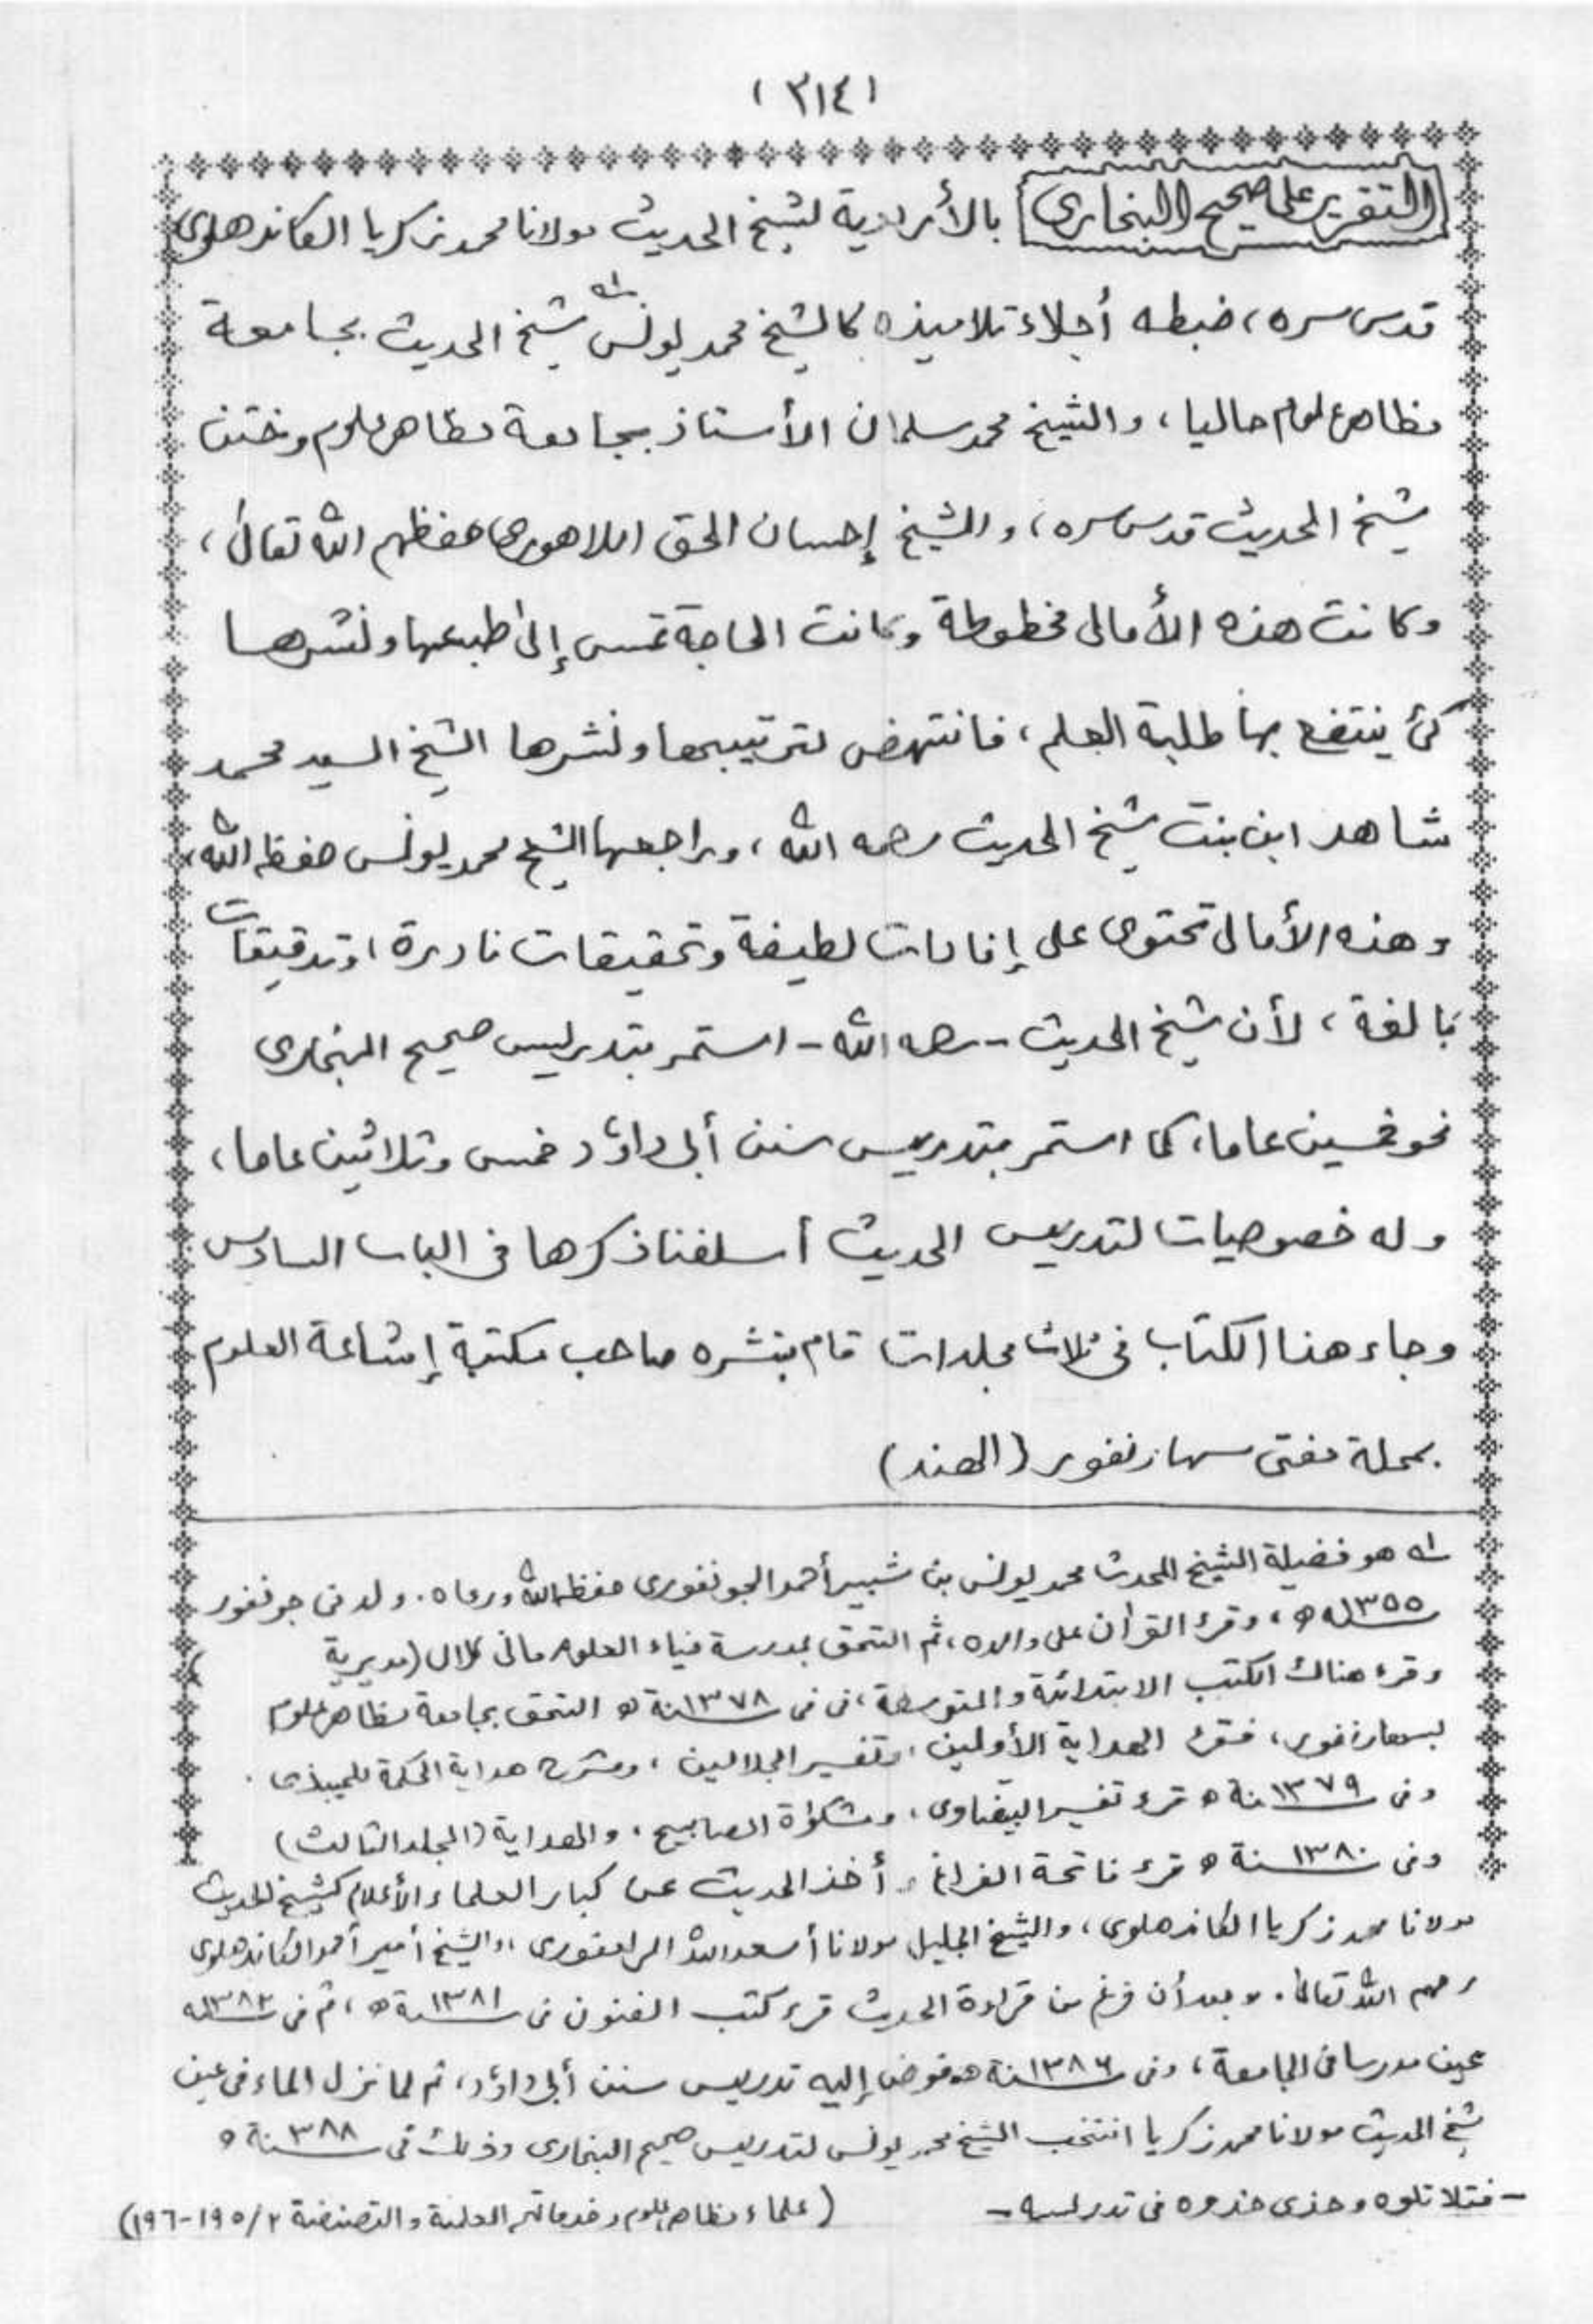 ( ٣١٤ )
التقرير على صحيح البخارى بالأردية لشيخ الحديث مولانا محمد زكريا الكاندهلوى
قدس سره، ضبطه أجلاء تلاميذه كالشيخ محمد يونس له شيخ الحديث بجامعة
مظاهر علوم حاليا، والشيخ محمد سلمان الأستاذ بجامعة مظاهر علوم وختن
شيخ الحديث قدس سره، والشيخ إحسان الحق اللاهورى حفظهم الله تعالىٰ،
وكانت هذه الأمالى مخطوطة وكانت الحاجة تمس إلىٰ طبعها ونشرها
كىْ ينتفع بها طلبة العلم، فانتهض لترتيبها ونشرها الشيخ السيد محمد
شاهد ابن بنت شيخ الحديث رحمه الله، وراجعها الشيخ محمد يونس حفظه الله،
وهذه الأمالى تحتوى على إفادات لطيفة وتحقيقات نادرة، وتدقيقات
بالغة، لأن شيخ الحديث -رحمه الله- استمر بتدريس صحيح البخارى
نحو خمسين عاما، كما استمر بتدريس سنن أبى داؤد خمس وثلاثين عاما،
وله خصوصيات لتدريس الحديث أسلفنا ذكرها فى الباب السادس
وجاء هذا الكتاب فى ثلاث مجلدات قام بنشره صاحب مكتبة إشاعة العلوم
بمحلة مفتى سهارنفور (الهند)
له هو فضيلة الشيخ المحدث محمد يونس بن شبير أحمد الجونفورى حفظه الله ورعاه. ولد فى جونفور
١٣٥٥ه، وقرء القرآن على والده، ثم التحق بمدرسة ضياء العلوم مانى كلال (مديرية )
وقرء هناك الكتب الابتدائية والمتوسطة، فى فى سنة ١٣٧٨ ه التحق بجامعة مظاهر علوم
بسهارنفور، فقرء الهداية الأولين، وتفسير الجلالين، وشرح هداية الحكمة للميبذى.
وفى سنة ١٣٧٩ ه قرء تفسير البيضاوى، ومشكوٰة المصابيح، والهداية (المجلد الثالث)
وفى سنة ١٣٨٠ ه قرء فاتحة الفراغ و أخذ الحديث عن كبار العلماء الأعلام كشيخ الحديث
مولانا محمد زكريا الكاندهلوى، والشيخ الجليل مولانا أسعد الله الرامفورى، والشيخ أمير أحمد الكاندهلوى
رحمهم الله تعالىٰ. وبعد أن فرغ من قراءة الحديث قرء كتب الفنون فى سنة ١٣٨١ ه، ثم فى ١٣٨٢ه
عين مدرسا فى الجامعة، وفى سنة ١٣٨٦ ه فوض إليه تدريس سنن أبى داؤد، ثم لما نزل الماء فى عين
شيخ الحديث مولانا محمد زكريا انتخب الشيخ محمد يونس لتدريس صحيح البخارى وذلك فى سنة ١٣٨٨ ه
- فتلا تلوه وحذى حذوه فى تدريسه - (علماء مظاهر علوم وخدماتهم العلمية والتصنيفية ٢/١٩٥-١٩٦)